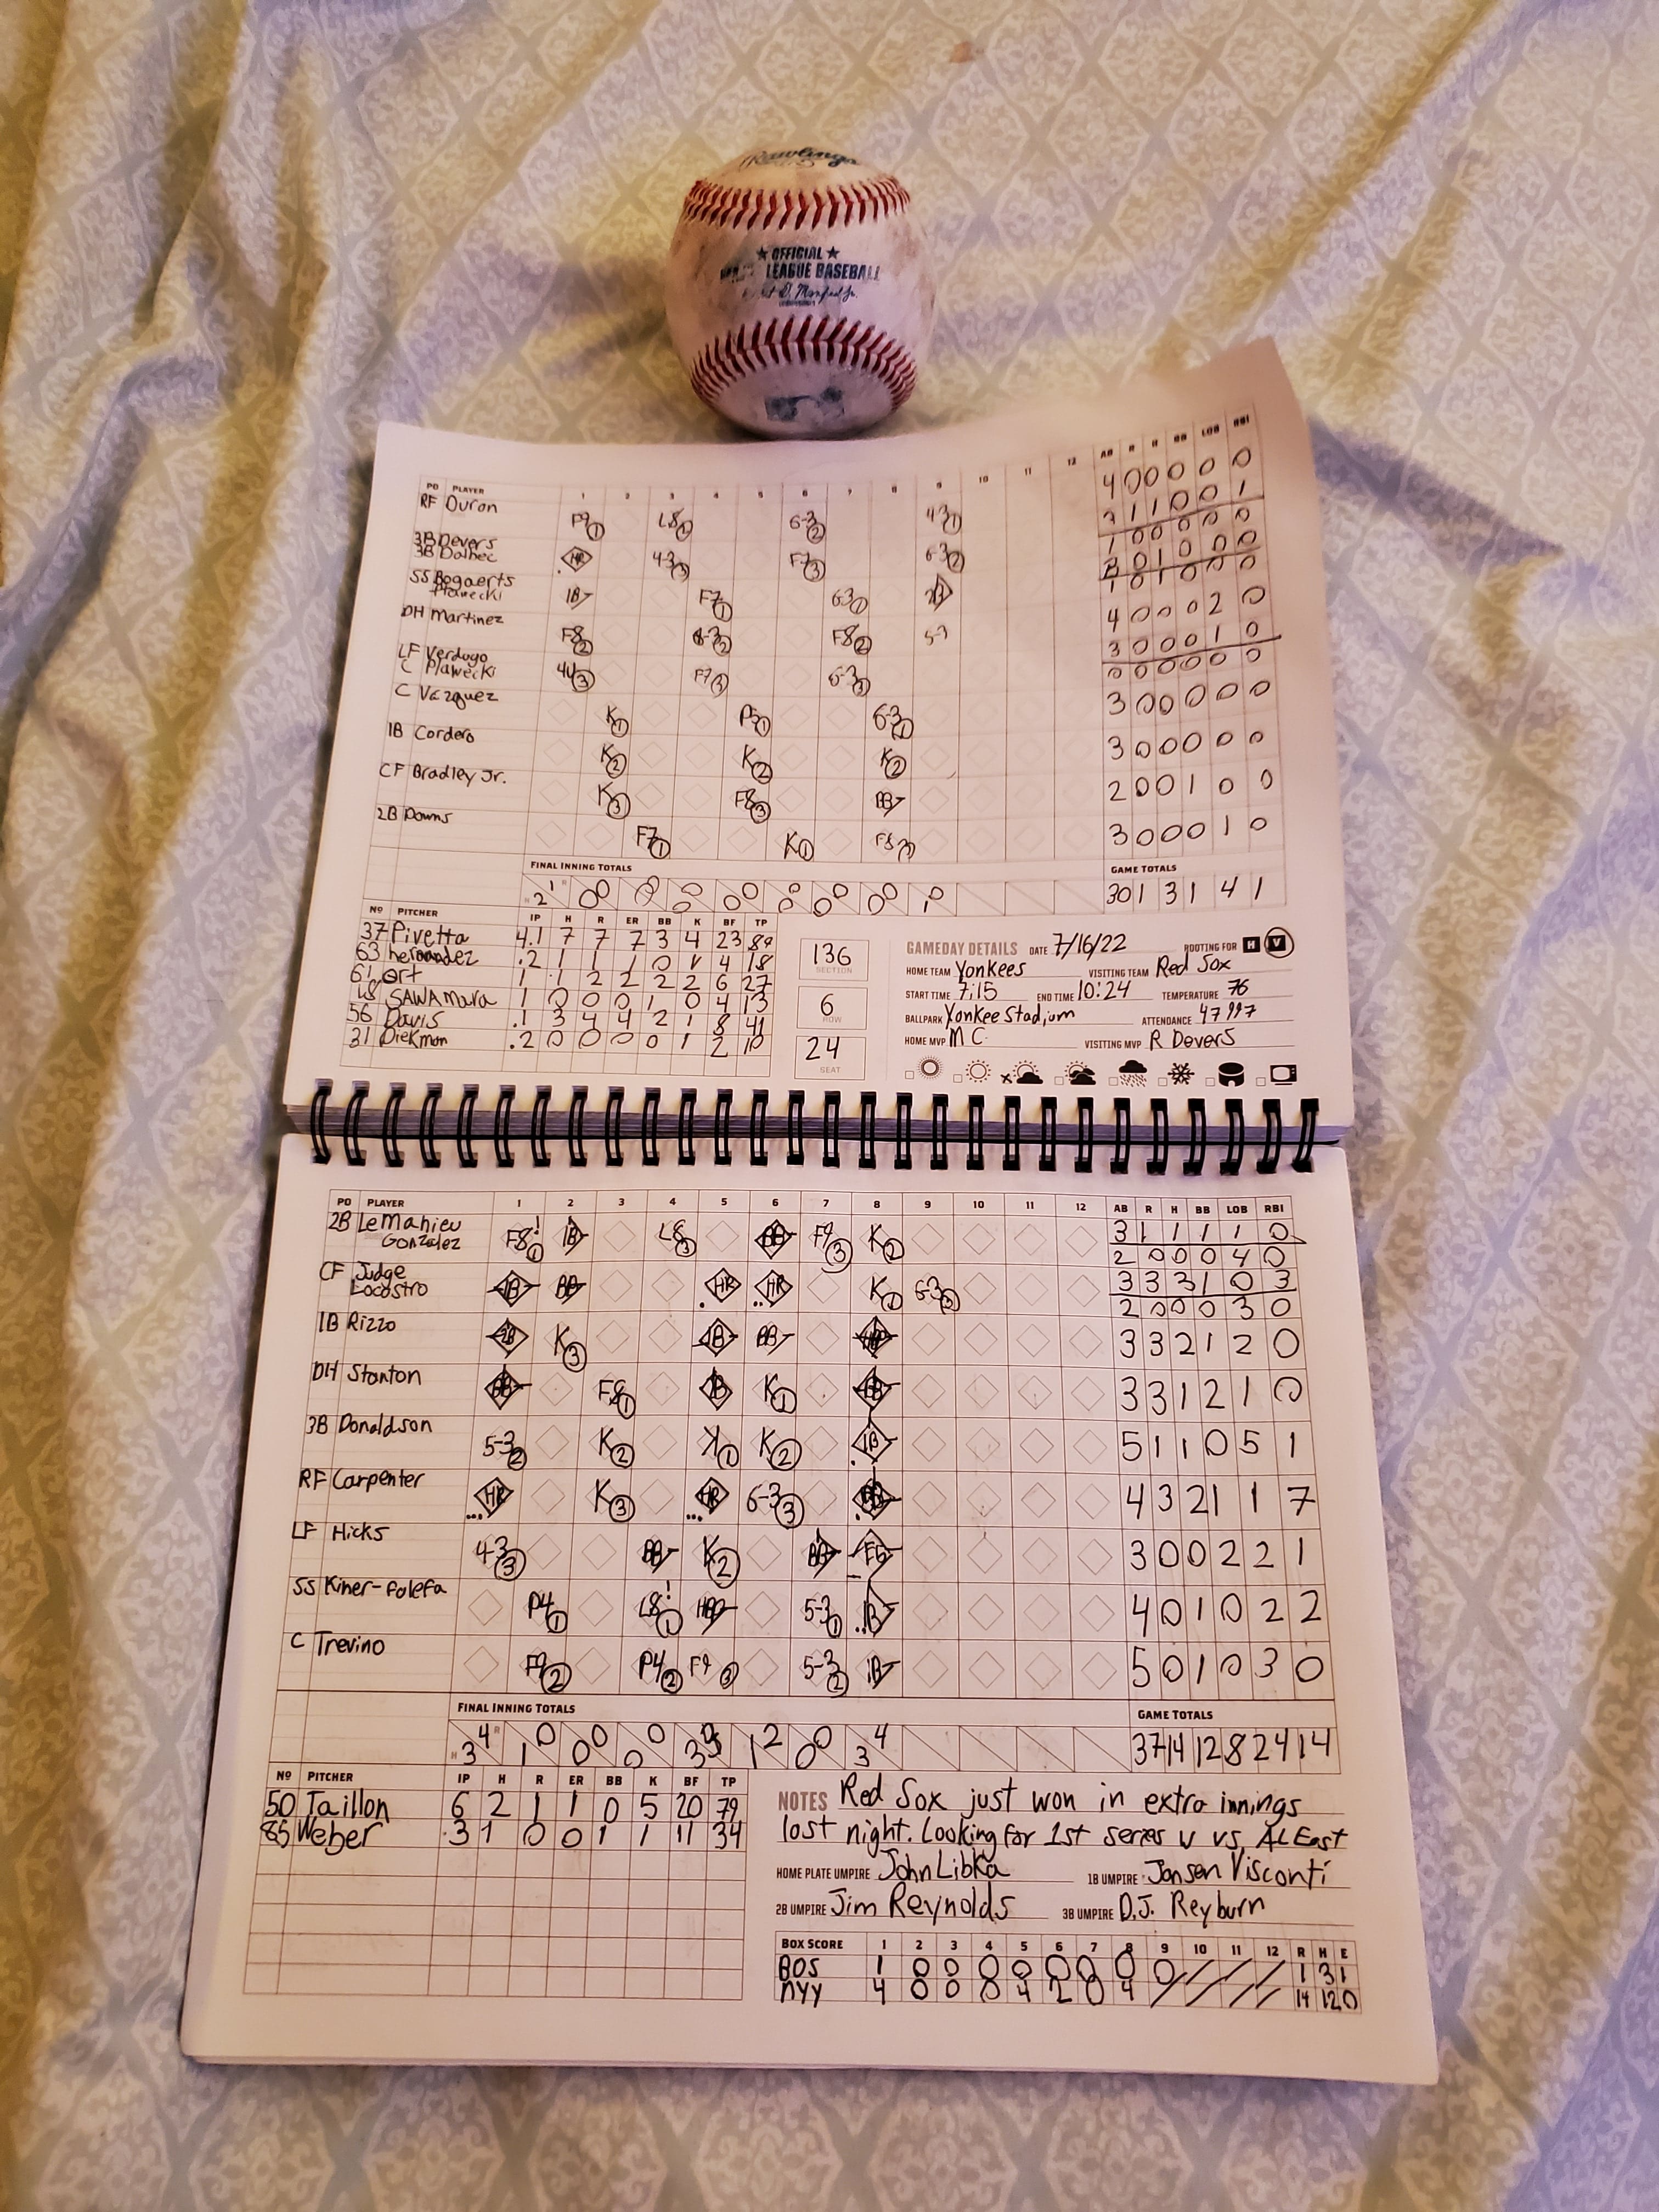 Rawlings
★ OFFICIAL ★
LEAGUE BASEBALL
PO PLAYER 1 2 3 4 5 6 7 8 9 10 11 12 AB R H BB LOB RBI
RF Duran F9 1 L8 6-3 2 4-3 1 4 0 0 0 0 0
3B Devers 1 1 0 0 1
3B Dalbec HR 4-3 3 F7 3 6-3 2 1 0 0 0 0 0
SS Bogaerts 3 0 1 0 0 0
Plawecki 1B F7 1 6-3 1 2B 1 0 1 0 0 0
DH Martinez F8 2 6-3 2 F8 2 5-3 4 0 0 0 2 0
LF Verdugo 3 0 0 0 1 0
C Plawecki 4U 3 F7 3 6-3 3 0 0 0 0 0 0
C Vazquez K 1 P5 1 6-3 1 3 0 0 0 0 0
1B Cordero K 2 K 2 K 2 3 0 0 0 0 0
CF Bradley Jr. K 3 F8 3 BB 2 0 0 1 0 0
2B Downs F7 1 K 1 F8 3 3 0 0 0 1 0
FINAL INNING TOTALS GAME TOTALS
H 2 1 R 0 0 0 0 0 0 0 0 0 0 0 0 0 0 1 0 30 1 3 1 4 1
Nº PITCHER IP H R ER BB K BF TP
37 Pivetta 4.1 7 7 7 3 4 23 89
63 hernandez .2 1 1 1 0 1 4 18
61 ort 1 1 2 2 2 2 6 27
18 SAWAMURA 1 0 0 0 1 0 4 13
56 Davis .1 3 4 4 2 1 8 41
31 Diekman .2 0 0 0 0 1 2 10
136
SECTION
6
ROW
24
SEAT
GAMEDAY DETAILS DATE 7/16/22 ROOTING FOR H V
HOME TEAM Yankees VISITING TEAM Red Sox
START TIME 7:15 END TIME 10:24 TEMPERATURE 76
BALLPARK Yankee Stadium ATTENDANCE 47 997
HOME MVP M C VISITING MVP R Devers
PO PLAYER 1 2 3 4 5 6 7 8 9 10 11 12 AB R H BB LOB RBI
2B LeMahieu 3 1 1 1 1 0
Gonzalez F8! 1 1B L8 3 BB F9 3 K 2 2 0 0 0 4 0
CF Judge 3 3 3 1 0 3
Locastro 1B BB HR HR K 6-3 3 2 0 0 0 3 0
1B Rizzo K 3 1B BB HBP 3 3 2 1 2 0
DH Stanton BB F8 1 1B K 1 BB 3 3 1 2 1 0
3B Donaldson 5-3 2 K 2 K 1 K 2 1B 5 1 1 0 5 1
RF Carpenter HR K 3 HR 6-3 3 4 3 2 1 1 7
LF Hicks 4-3 3 BB K 2 BB E6 3 0 0 2 2 1
SS Kiner-falefa P4 1 L8! 1 HBP 5-3 1 1B 4 0 1 0 2 2
C Trevino F9 2 P4 2 F9 3 5-3 2 1B 5 0 1 0 3 0
FINAL INNING TOTALS GAME TOTALS
H 3 4 R 1 0 0 0 0 0 3 1 2 0 0 3 4 37 14 12 8 24 14
Nº PITCHER IP H R ER BB K BF TP
50 Taillon 6 2 1 1 0 5 20 79
85 Weber .3 1 0 0 1 1 11 34
NOTES Red Sox just won in extra innings
last night. Looking for 1st series W vs. AL East
HOME PLATE UMPIRE John Libka 1B UMPIRE Jansen Visconti
2B UMPIRE Jim Reynolds 3B UMPIRE D.J. Reyburn
BOX SCORE 1 2 3 4 5 6 7 8 9 10 11 12 R H E
BOS 1 0 0 0 0 0 0 0 0 / / / 1 3 1
nyy 4 0 0 0 4 2 0 4 / / / / 14 12 0